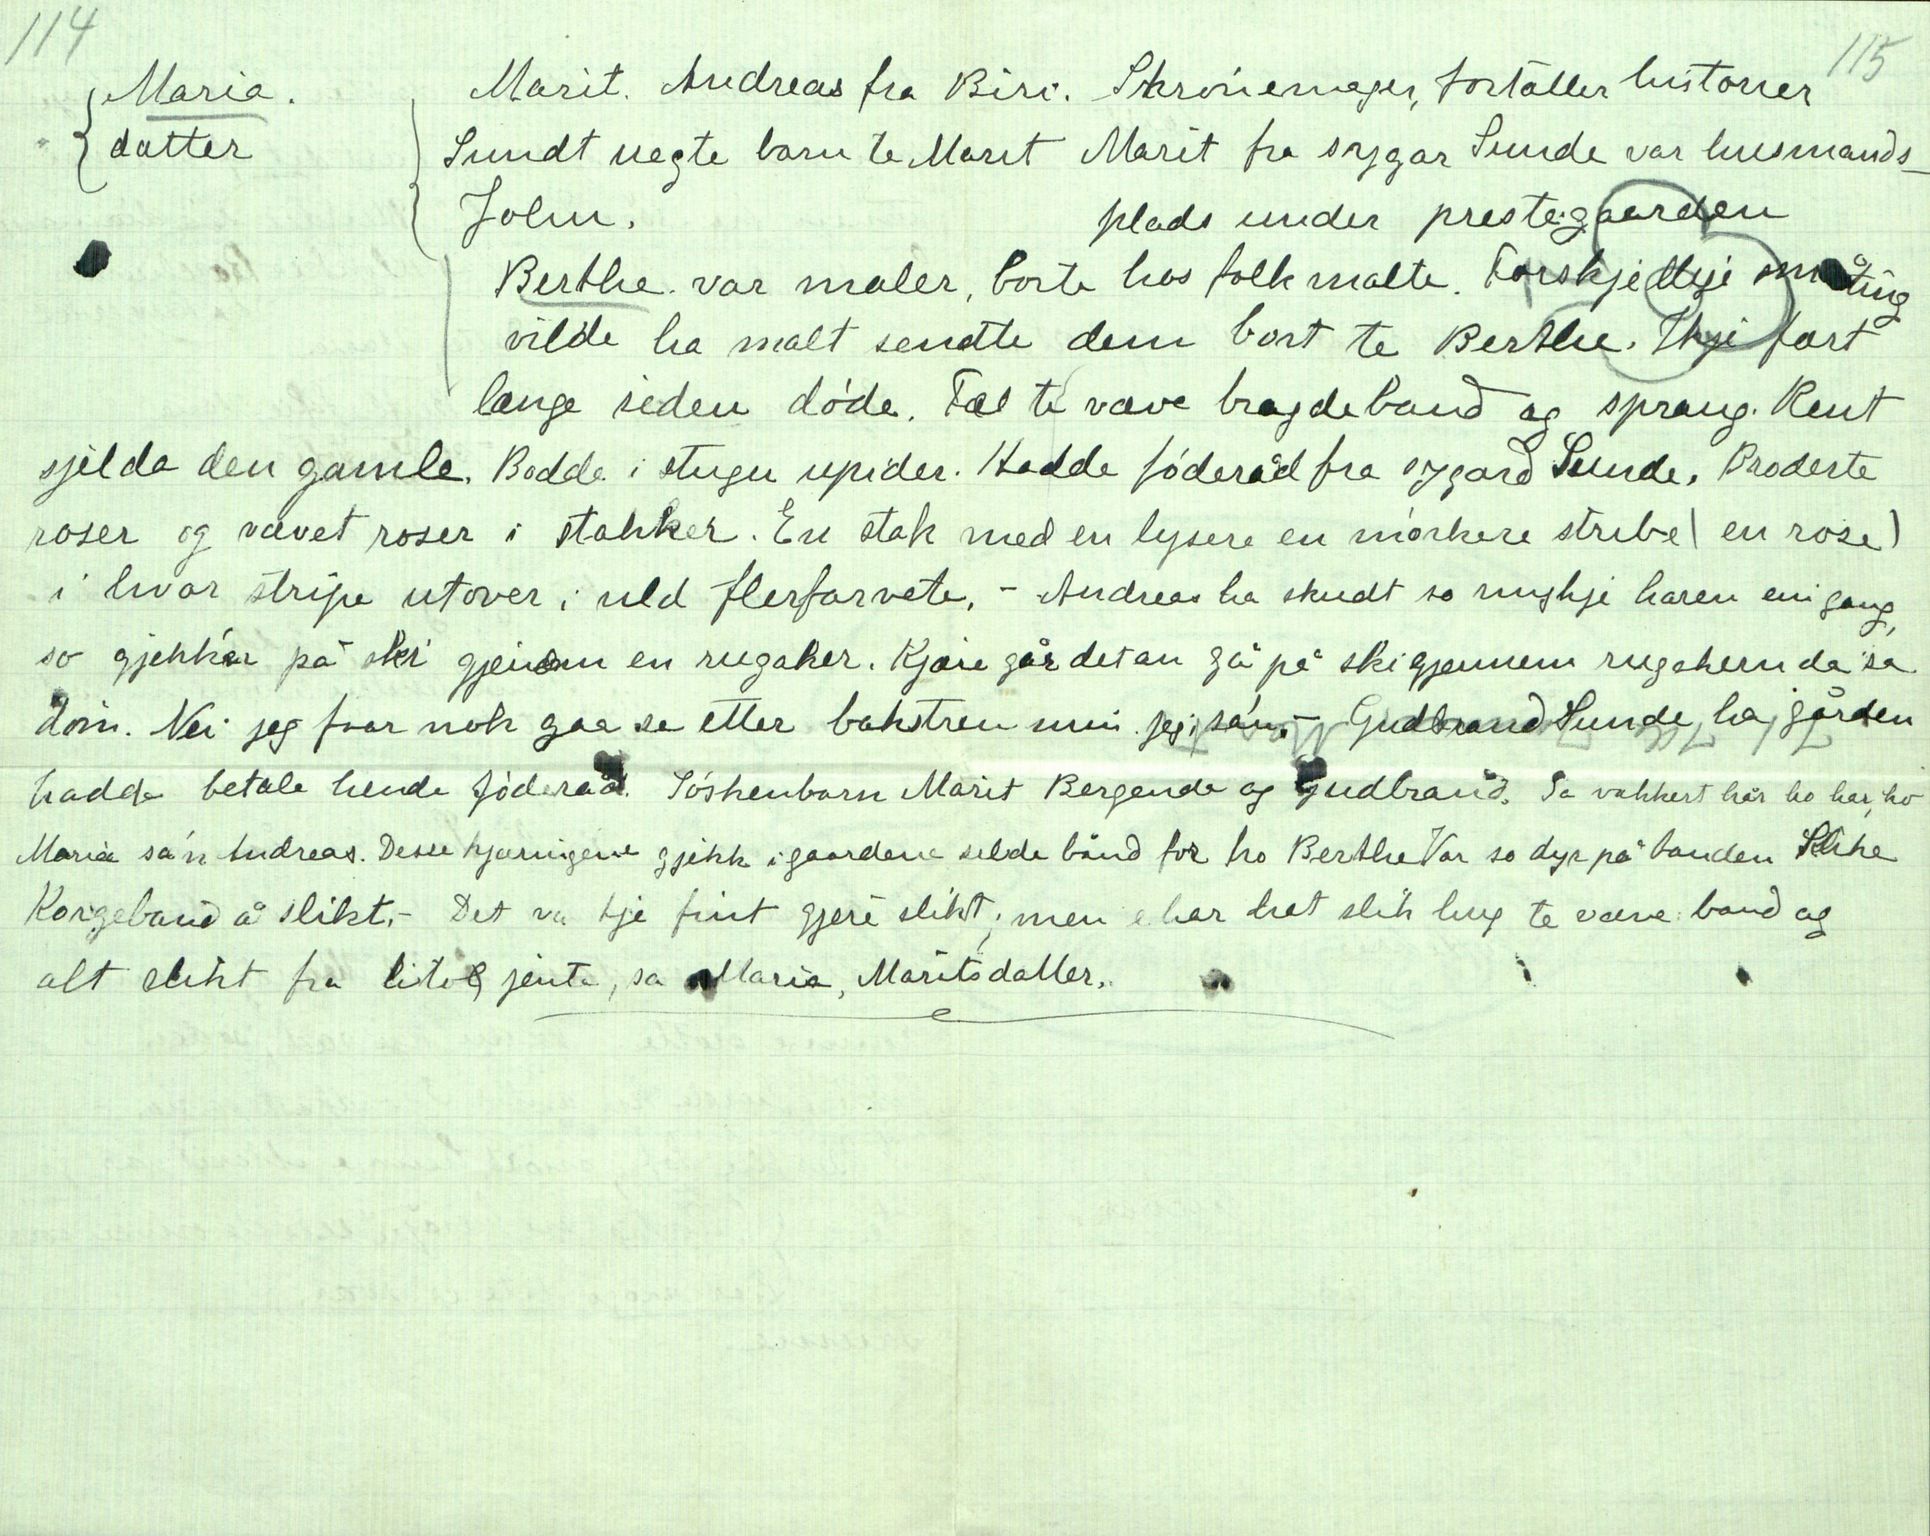 114
115
Maria. Marit. Andreas fra Biri. Skrönemager, fortäller historier
datter Sundt uegte barn te Marit Marit fra sygar Sunde var husmands-
John. plads under prestegaarden
Berthe. var maler, borte hos folk malte. Forskjellige småting
vilde ha malt sendte dem bort te Berthe. Ikje fort
lange siden döde. Fæl te væve bragdeband og sprang. Rent
sjelda den gamle. Bodde i stugu upider. Hadde föderåd fra sygard Sunde. Broderte
roser og vævet roser i stakker. En stak med en lysere en mörkere stribe (en rose)
i hvar stripe utover i uld flerfarvete. - Andreas ha skudt so mykji haren ein gang,
so gjekk'en på ski gjenom en rugaker. Kjære går det an gå på ski gjennem rugakern da sa
döm. Nei jeg faar nok gaa se etter bakstren min jeg, sa'n. - Gudbrand Sunde, ha gården
hadde betale hende föderåd. Söskenbarn Marit Bergende og Gudbrand. Sa vakkert hår ho har, ho
Maria sa'n Andreas. Desse kjæringene gjekk i gaardene selde bånd for ho Berthe Var so dyr på banden Slike
Korgeband å slikt. - Det va kje fint gjere slikt, men e har hat slik hug te væve band og
alt slikt fra liti jente, sa Maria, Maritsdatter.